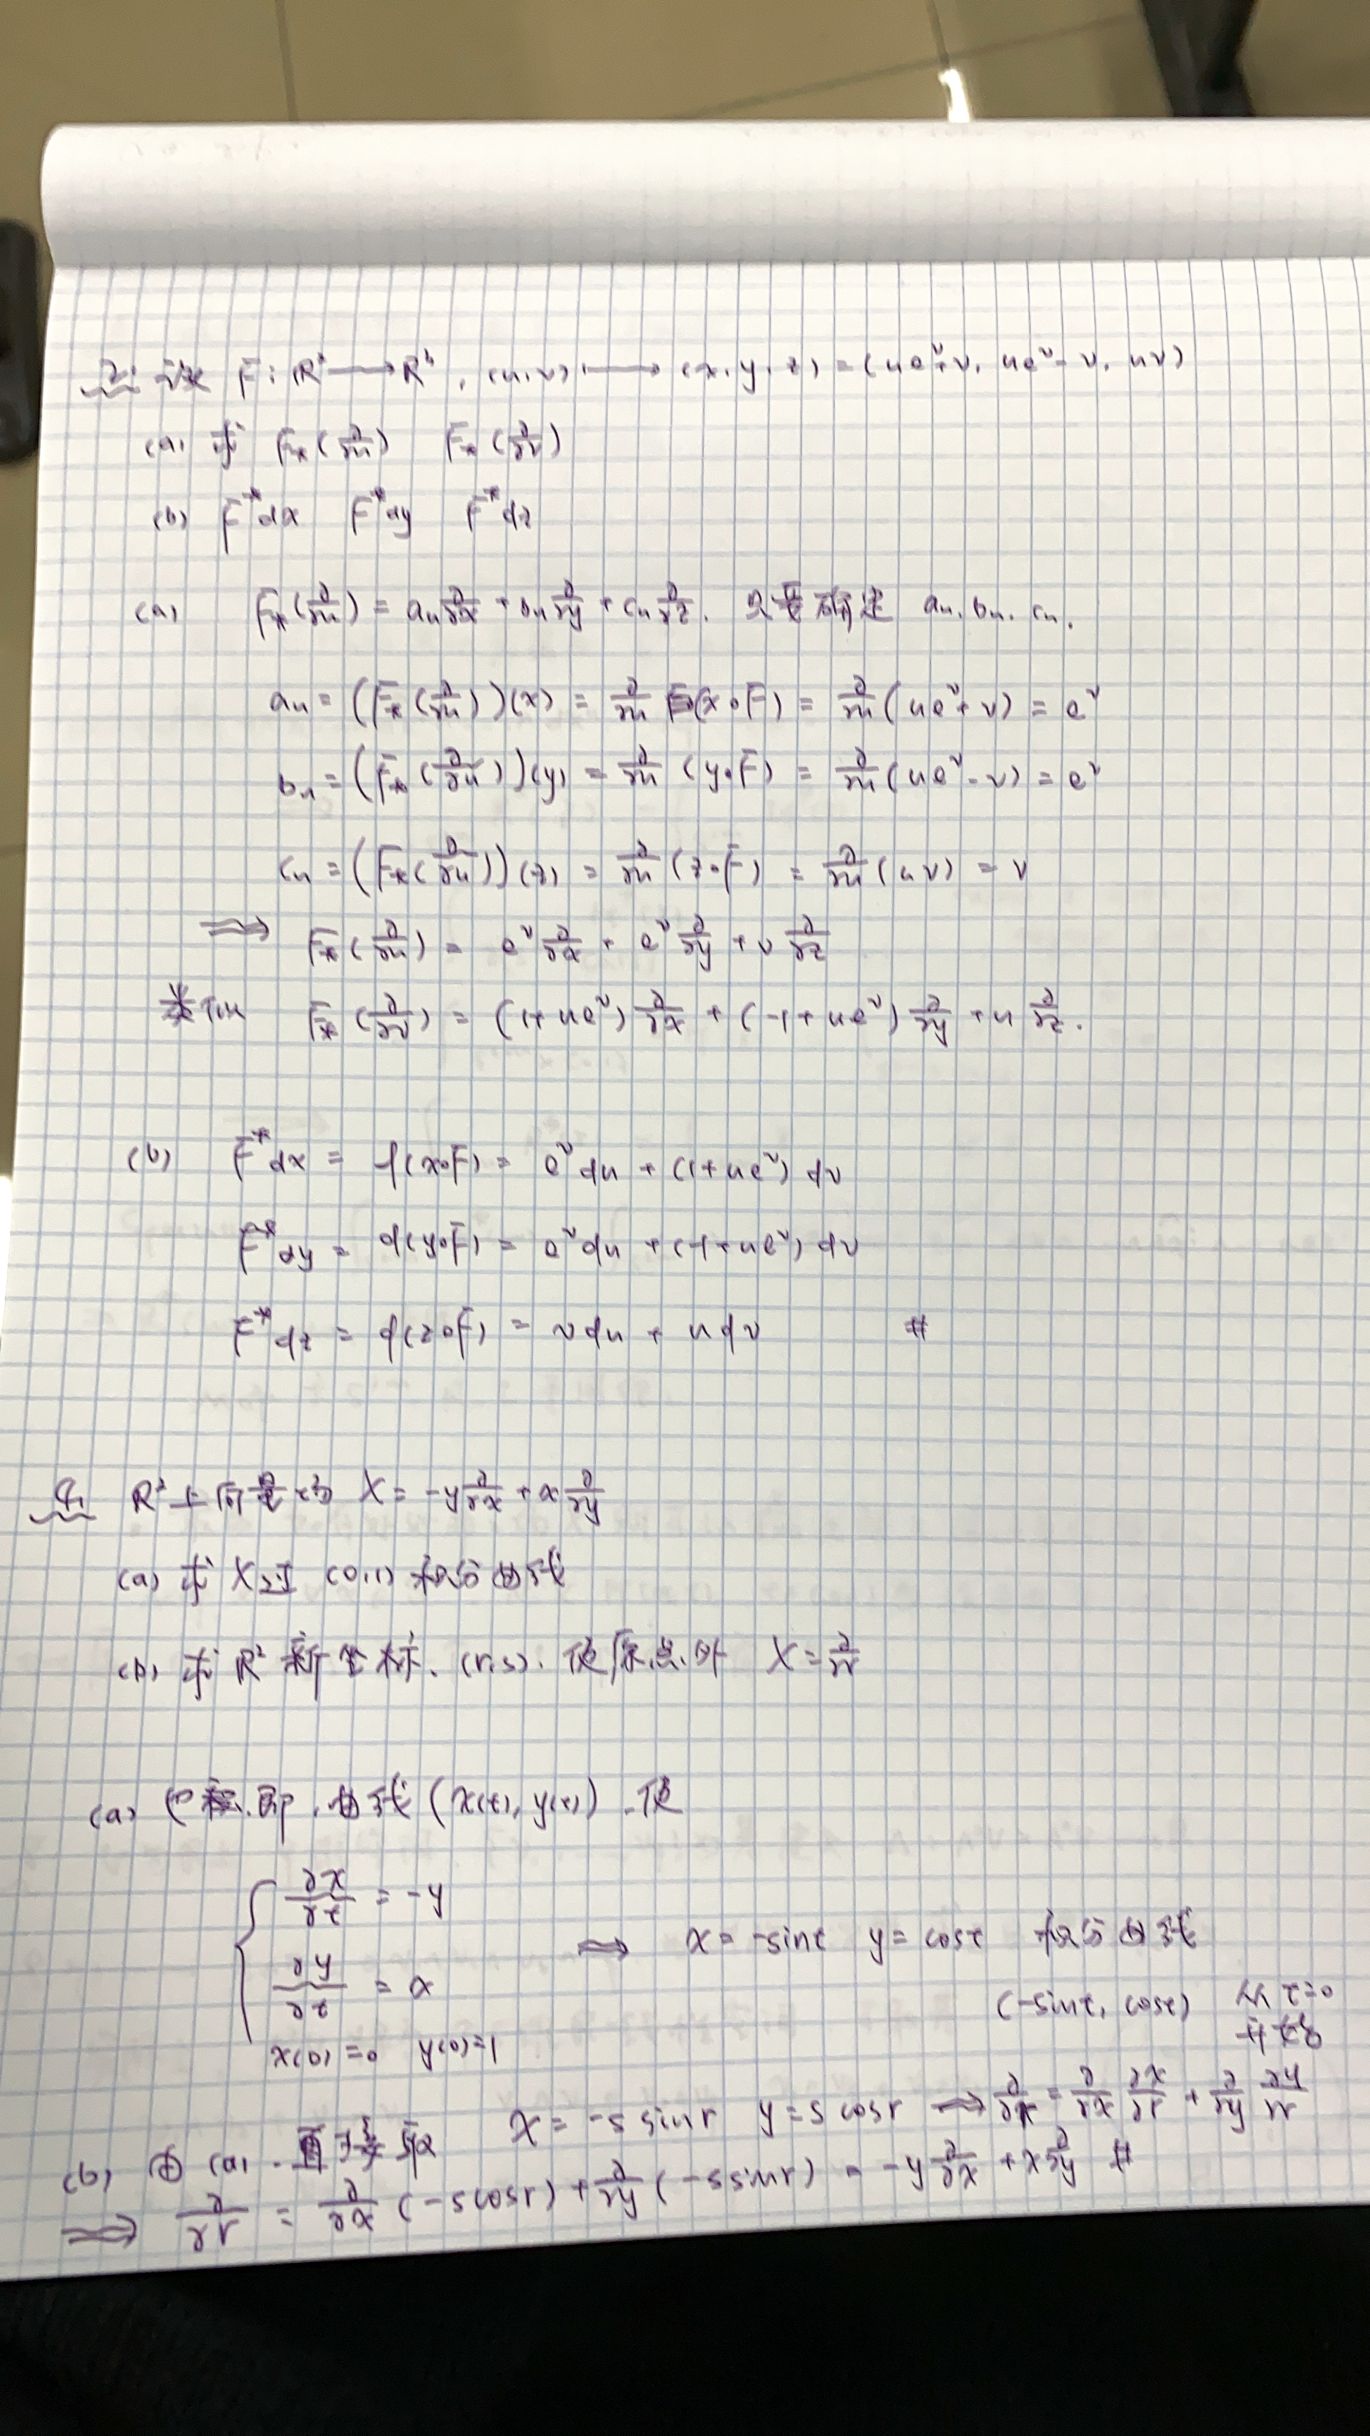 2. 设 F: R² ⟶ R³, (u,v) ⟼ (x,y,z) = (ue^v+v, ue^v-v, uv)
(a) 求 F_*(∂/∂u) F_*(∂/∂v)
(b) F^*dx F^*dy F^*dz
(a) F_*(∂/∂u) = a_u ∂/∂x + b_u ∂/∂y + c_u ∂/∂z. 只需确定 a_u, b_u, c_u.
a_u = (F_*(∂/∂u))(x) = ∂/∂u (x∘F) = ∂/∂u (ue^v+v) = e^v
b_u = (F_*(∂/∂u))(y) = ∂/∂u (y∘F) = ∂/∂u (ue^v-v) = e^v
c_u = (F_*(∂/∂u))(z) = ∂/∂u (z∘F) = ∂/∂u (uv) = v
⟹ F_*(∂/∂u) = e^v ∂/∂x + e^v ∂/∂y + v ∂/∂z
类似 F_*(∂/∂v) = (1+ue^v) ∂/∂x + (-1+ue^v) ∂/∂y + u ∂/∂z.
(b) F^*dx = d(x∘F) = e^v du + (1+ue^v) dv
F^*dy = d(y∘F) = e^v du + (-1+ue^v) dv
F^*dz = d(z∘F) = v du + u dv #
R²上向量场 X = -y ∂/∂x + x ∂/∂y
(a) 求 X 过 (0,1) 积分曲线
(b) 求 R² 新坐标. (r,s). 使原点外 X = ∂/∂r
(a) 即, 曲线 (x(t), y(t)) 使
∂x/∂t = -y
∂y/∂t = x ⟹ x = -sint y = cost 积分曲线
(-sint, cost) 从 t=0 开始
x(0)=0 y(0)=1
(b) 由 (a). 直接取 x = -s sinr y = s cosr ⟹ ∂/∂r = ∂/∂x ∂x/∂r + ∂/∂y ∂y/∂r
⟹ ∂/∂r = ∂/∂x (-s cosr) + ∂/∂y (-s sinr) = -y ∂/∂x + x ∂/∂y #